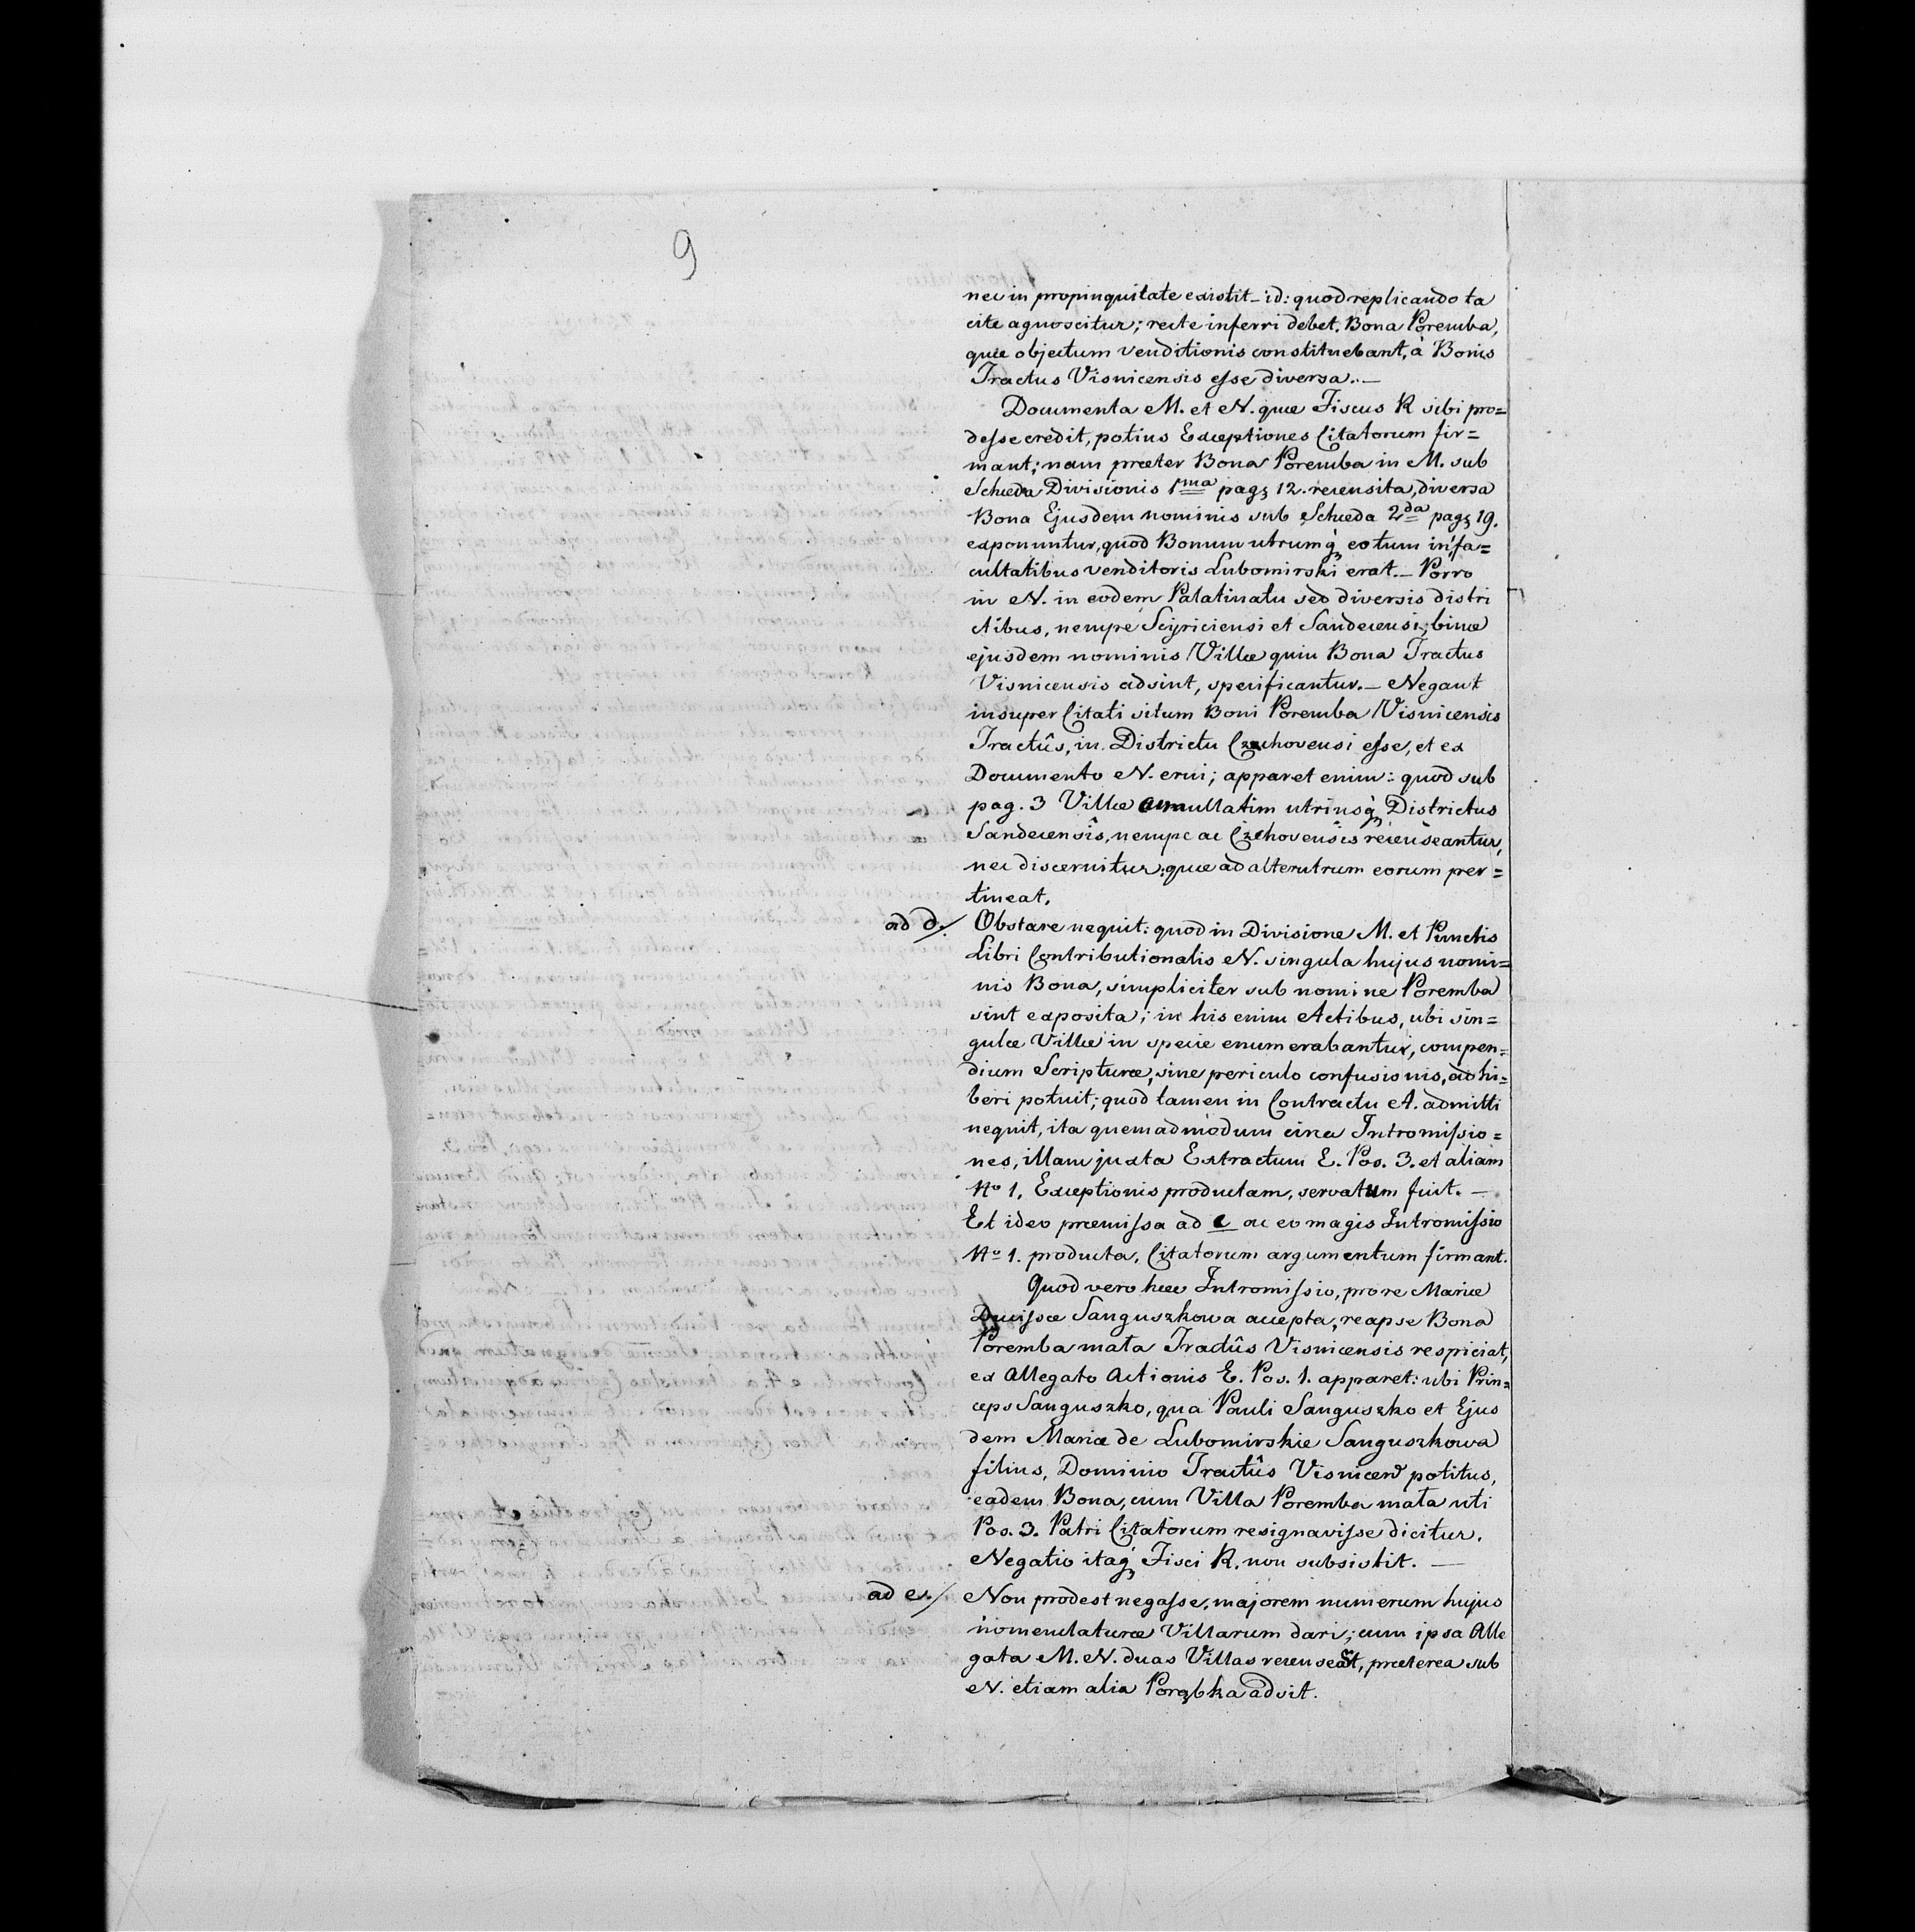 9
nec in propinquitate existit – id: quod replicando ta
cite agnoscitur; recte inferri debet. Bona Poremba,
quæ objectum venditionis constituebant, à Bonis
Tractus Visnicensis esse diversa. –
Documenta M. et N. quæ Fiscus R sibi pro=
desse credit, potius Exceptiones Citatorum fir=
mant; nam præter Bona Poremba in M. sub
Scheda Divisionis 1ma pag 12. recensita, diversa
Bona Ejusdem nominis sub Scheda 2da pag 19.
exponuntur, quod Bonum utrumq eotum in fa=
cultatibus venditoris Lubomirski erat. – Porro
in N. in eodem Palatinatu sed diversis distri
ctibus, nempe Scijriciensi et Sandecensi; binæ
ejusdem nominis Villæ quin Bona Tractus
Visnicensis adsint, specificantur. – Negant
insuper Citati situm Boni Poremba Visnicensis
Tractûs, in Districtu Czchovensi esse, et ex
Documento N. erui; apparet enim: quod sub
pag. 3 Villæ cumullatim utriusq Districtus
Sandecensîs, nempe ac Czchovensis recenseantur,
nec discernitur: quæ ad alterutrum eorum per=
tineat.
ad d./ Obstare nequit: quod in Divisione M. et Punctis
Libri Contributionalis N. singula hujus nomi=
nis Bona, simpliciter sub nomine Poremba
sint exposita; in his enim Actibus, ubi sin=
gulæ Villæ in specie enumerabantur, compen=
dium Scripturæ, sine periculo confusionis, adhi=
beri potuit; quod tamen in Contractu A. admitti
nequit, ita quemadmodum circa Intromissio=
nes, illam juxta Extractum E. Pos. 3. et aliam
No 1, Exceptionis productam, servatum fuit. –
Et ideo præmissa ad c ac eo magis Intromissio
No 1. producta, Citatorum argumentum firmant.
Quod vero hæc Intromissio, pro re Mariæ
Ducissæ Sanguszkowa accepta, reapse Bona
Poremba mała Tractûs Visnicensis respiciat,
ex Allegato Actionis E. Pos. 1. apparet: ubi Prin=
ceps Sanguszko, qua Pauli Sanguszko et Ejus
dem Mariæ de Lubomirskie Sanguszkowa
filius, Dominio Tractûs Visnicen potitus,
eadem Bona, cum Villa Poremba mała uti
Pos. 3. Patri Citatorum resignavisse dicitur.
Negatio itaq Fisci R. non subsistit. –
ad e./ Non prodest negasse, majorem numerum hujus
nomenclaturæ Villarum dari; cum ipsa Alle
gata M. N. duas Villas recenseat, præterea sub
N. etiam alia Porąbka adsit.